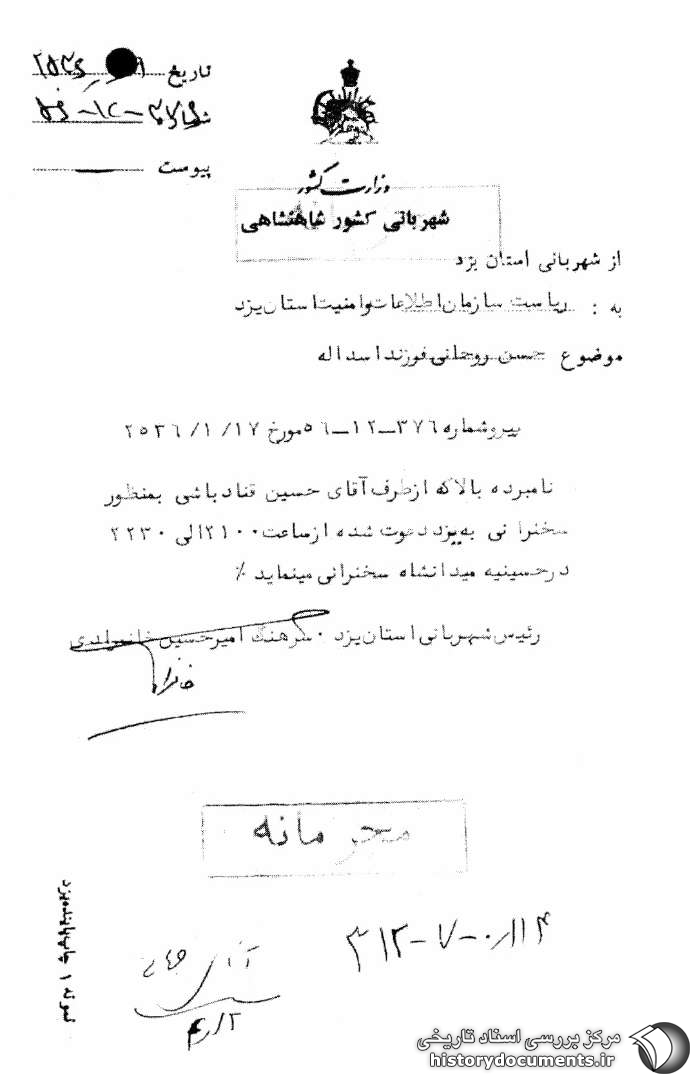 تاریخ ۲۵۳۶
شماره ۳۷۶-۱۲-۵۶
پیوست
وزارت کشور
شهربانی کشور شاهنشاهی
از شهربانی استان یزد
به : ریاست سازمان اطلاعات وامنیت استان یزد
موضوع حسن روحانی فرزند اسداله
پیروشماره ۳۷۶-۱۲-۵۶ مورخ ۲۵۳۶/۱/۱۷
نامبرده بالاکه ازطرف آقای حسین قناد باشی بمنظور
سخنرا نی به یزد دعوت شده ازساعت ۲۱۰۰ الی ۲۲۳۰
درحسینیه میدانشاه سخنرانی مینماید ٪
رئیس شهربانی استان یزد . سرهنگ امیرحسین
محرمانه
۳۱۲-۷-۰/۱۱۴
آقای
نمونه ۱
مرکز بررسی اسناد تاریخی
historydocuments.ir